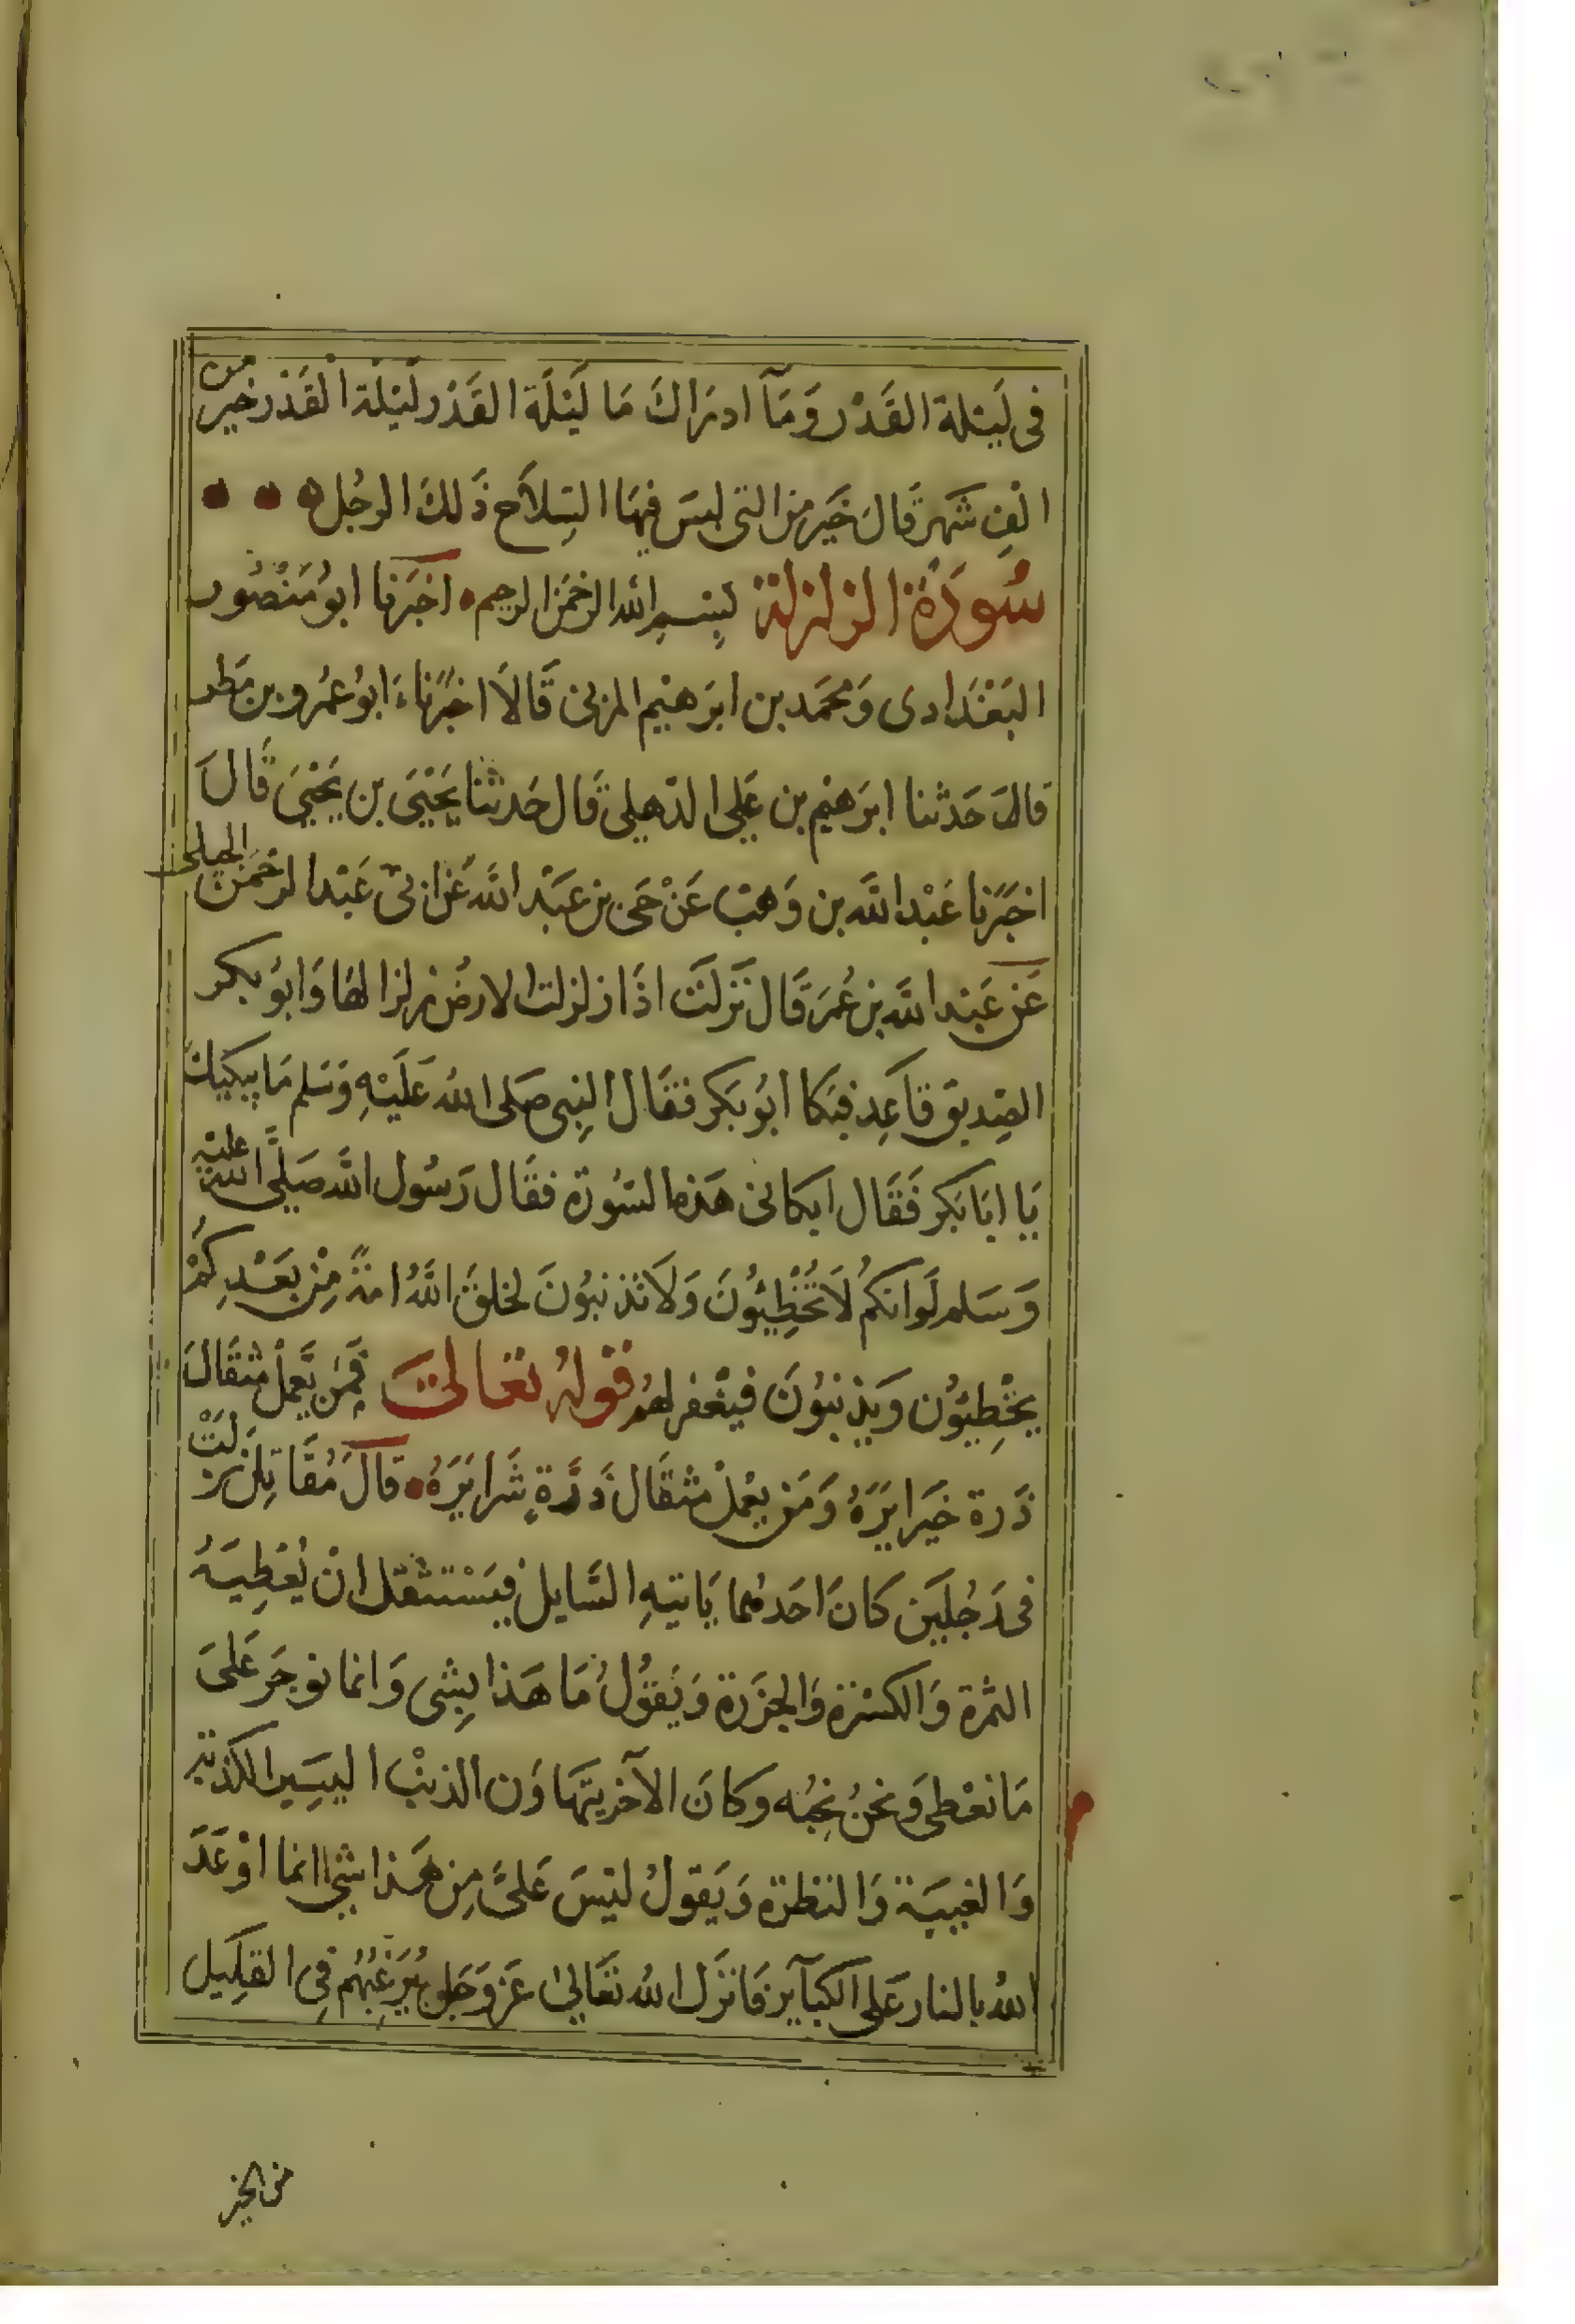 فى ليلة القدر وما ادراك ما ليلة القدر ليلة القدر خير من
الف شهر قال خير من التى لبس فيها السلاح ذلك الرجل
سورة الزلزلة بسم الله الرحمن الرحيم اخبرنا ابو منصور
البغدادى ومحمد بن ابرهيم المزنى قالا اخبرنا ابو عمرو بن مطر
قال حدثنا ابرهيم بن على الذهلى قال حدثنا يحيى بن يحيى قال
اخبرنا عبد الله بن وهب عن حى بن عبد الله عن ابى عبد الرحمن الحبلى
عن عبد الله بن عمر قال نزلت اذا زلزلت الارض زلزالها وابو بكر
الصديق قاعد فبكا ابو بكر فقال النبى صلى الله عليه وسلم ما يبكيك
يا ابا بكر فقال ابكانى هذه السورة فقال رسول الله صلى الله عليه
وسلم لو انكم لا تخطيئون ولا تذنبون لخلق الله امة من بعدكم
يخطيئون ويذنبون فيغفر لهم قوله تعالى فمن يعمل مثقال
ذرة خيرا يره ومن يعمل مثقال ذرة شرا يره قال مقاتل نزلت
فى رجلين كان احدهما ياتيه السايل فيستثقل ان يعطيه
التمرة والكسرة والجزرة ويقول ما هذا بشى وانما نوجر على
ما نعطى ونحن نحبه وكان الآخر يتهاون الذنب اليسير الكذبة
والغيبة والنظرة ويقول ليس على من هذا شى انما اوعد
الله بالنار على الكبآير فانزل الله تعالى عز وجل يرغبهم فى القليل
من الخير